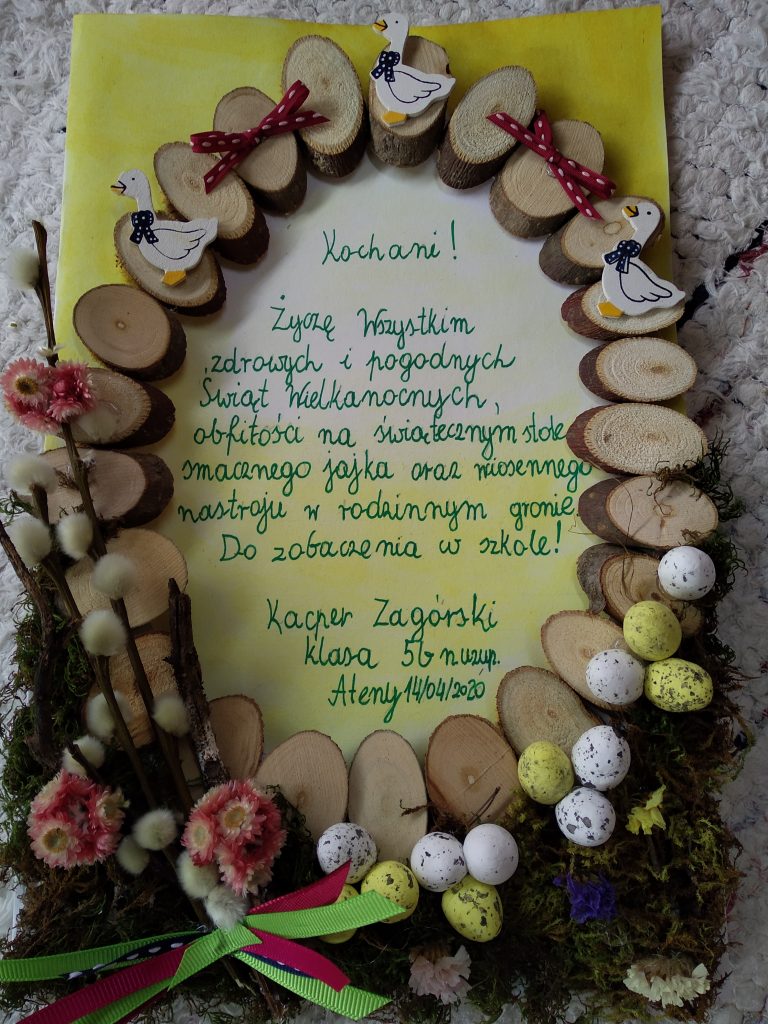 Kochani!
Życzę Wszystkim
zdrowych i pogodnych
Świąt Wielkanocnych,
obfitości na świątecznym stole
smacznego jajka oraz wiosennego
nastroju w rodzinnym gronie.
Do zobaczenia w szkole!
Kacper Zagórski
klasa 5b nuzup.
Ateny 14/04/2020